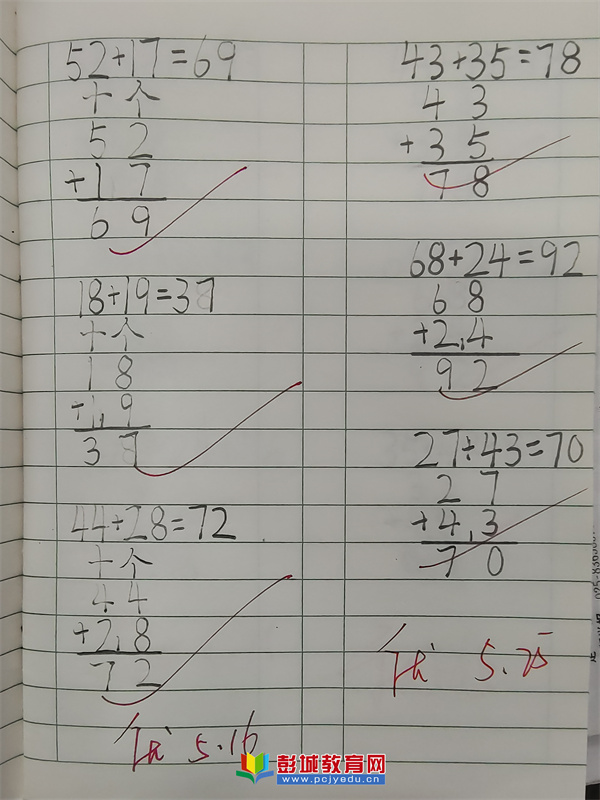 52+17=69
十个
52
+17
69
18+19=37
十个
18
+1.9
37
44+28=72
十个
44
+2.8
72
优 5.16
43+35=78
43
+35
78
68+24=92
68
+2.4
92
27+43=70
27
+4.3
70
优 5.25
彭城教育网
www.pcjyedu.cn